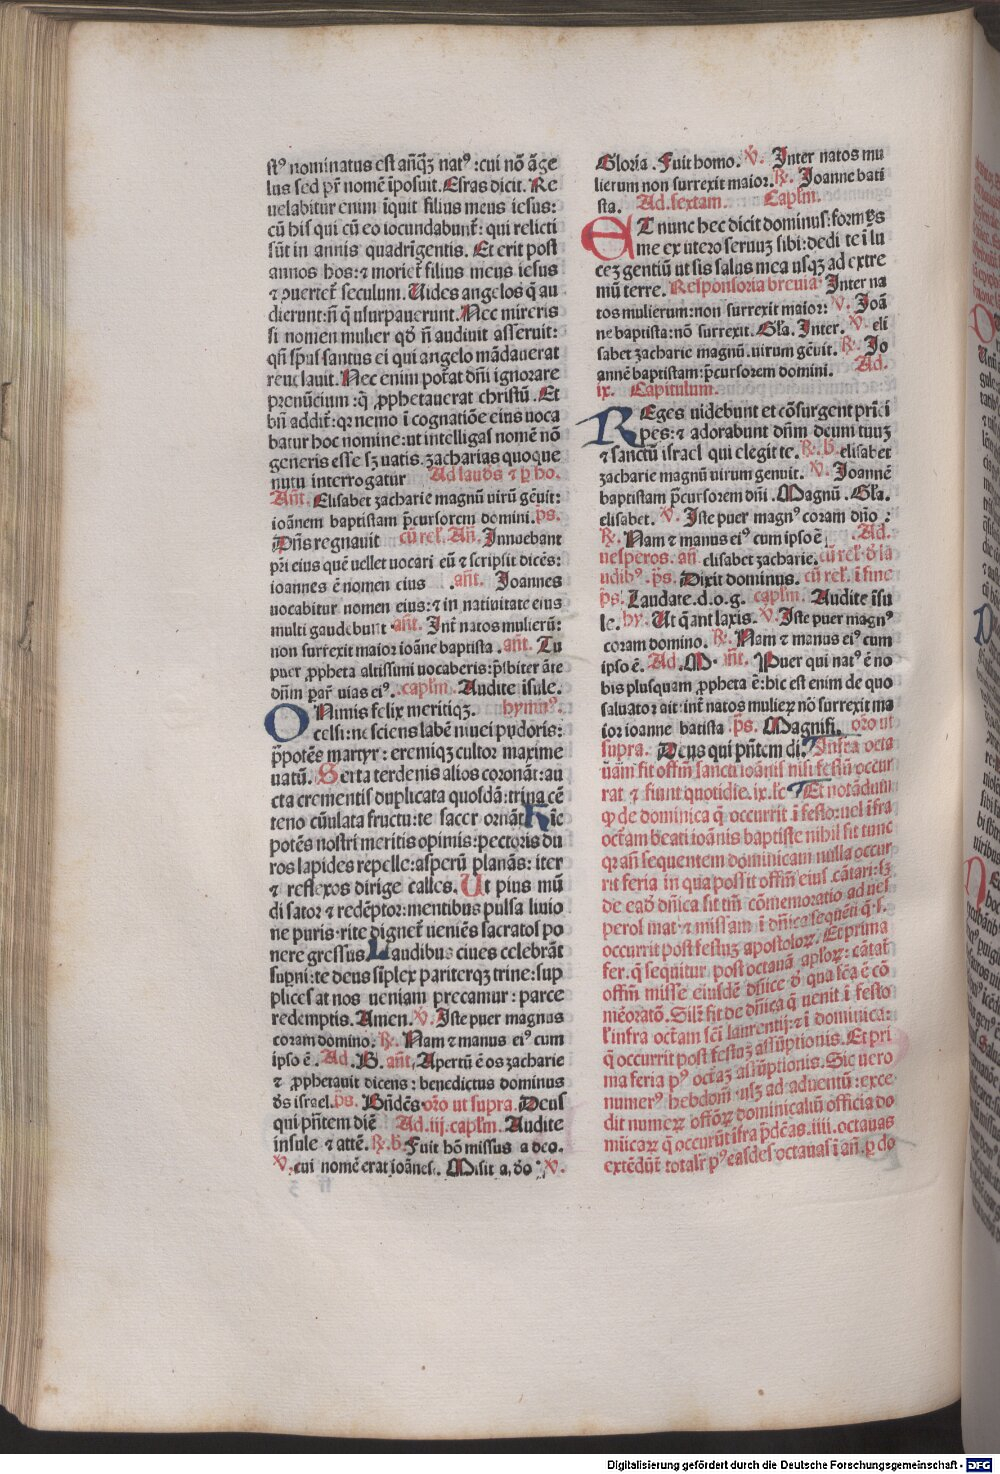 stꝰ nominatus est añq̃ꝫ natꝰ: cui nõ ãge
lus sed pr̃ nomẽ ĩposuit. Esras dicit. Re
uelabitur enim ĩquit filius meus iesus:
cũ his qui cũ eo iocundabunt̃: qui relicti
sũt in annis quadrĩgentis. Et erit post
annos hos: ⁊ moriet̃ filius meus iesus
⁊ ꝯuertet̃ seculum. Uides angelos q̃ au
dierunt: ñ q̃ usurpauerunt. Nec mireris
si nomen mulier qđ ñ audiuit asseruit:
qñ sp̃ul santus ei qui angelo mãdauerat
reuelauit. Nec enim pot̃at dñi ignorare
prenũcium: q̃ ꝓphetauerat christũ. Et
bñ addit̃: qꝛ nemo ĩ cognatiõe eius uoca
batur hoc nomine: ut intelligas nomẽ nõ
generis esse sꝫ uatis. zacharias quoque
nutu interrogatur Ad laud̃s ⁊ ꝑ ho.
Añt. Elisabet zacharie magnũ uirũ gẽuit:
ioãnem baptistam p̃cursorem domini. ps.
Dñs regnauit cũ rel̃. Añ. Innuebant
pr̃i eius quẽ uellet uocari eũ ⁊ scripsit dicẽs:
ioannes ẽ nomen eius. añt. Joannes
uocabitur nomen eius: ⁊ in natiuitate eius
multi gaudebunt. añt. Int̃ natos mulierũ:
non surrexit maior ioãne baptista. añt. Tu
puer ꝓpheta altissimi uocaberis: p̃ibiter ãte
dñm par̃ uias eiꝰ. cap̃lm. Audite isule.
O Nimis felix meritiqꝫ. hymnꝰ.
celsi: nesciens labẽ niuei pudoris:
p̃potẽs martyr: eremiqꝫ cultor maxime
uatũ. Serta terdenis alios coronãt: au
cta crementis duplicata quosdã: trina cẽ
teno cũulata fructu: te sacer ornãt. Hĩc
potẽs nostri meritis opimis: pectoris du
ros lapides repelle: asperũ planãs: iter
⁊ reflexos dirige calles. Ut pius mũ
di sator ⁊ redẽptor: mentibus pulsa liuio
ne puris: rite dignet̃ ueniẽs sacratos po
nere gressus. Laudibus ciues celebrãt
sup̃ni: te deus sĩplex pariterqꝫ trine: sup
plices at nos ueniam precamur: parce
redemptis. Amen. ℣. Iste puer magnus
coram domino. ℟. Nam ⁊ manus eiꝰ cum
ipso ẽ. Ad. B. añt. Apertũ ẽ os zacharie
⁊ ꝓphetauit dicens: benedictus dominus
d̃s israel. ps. Bñdc̃s. orõ ut supra. Deus
qui pñtem diẽ Ad. iij. cap̃lm. Audite
insule ⁊ attẽ. ℟. b. Fuit hõ missus a deo.
℣. cui nomẽ erat ioãnes. Misit a. d̃o: ℣.
Gloria. Fuit homo. ℣. Inter natos mu
lierum non surrexit maior. ℟. Joanne bati
sta. Ad. sextam. Cap̃lm.
ET nunc hec dicit dominus: formãs
me ex utero seruuꝫ sibi: dedi te ĩ lu
ceꝫ gentiũ ut sis salus mea usqꝫ ad extre
mũ terre. Responsoria breuia. Inter na
tos mulierum: non surrexit maior: ℣. Joã
ne baptista: nõ surrexit. Gl̃a. Inter. ℣. eli
sabet zacharie magnũ. uirum gẽuit. ℟. Jo
annẽ baptistam: p̃cursorem domini. Ad.
ix. Capitulum.
REges uidebunt et cõsurgent prĩci
pes: ⁊ adorabunt dñm deum tuuꝫ
⁊ sanctũ israel qui elegit te. ℟. b. elisabet
zacharie magnũ uirum genuit. ℣. Joannẽ
baptistam p̃cursorem dñi. Magnũ. Gl̃a.
elisabet. ℣. Iste puer magnꝰ coram dño:
℟. Nam ⁊ manus eiꝰ cum ipso ẽ. Ad.
uesperos. añ. elisabet zacharie. cũ rel̃. d̃ la
udibꝰ. ps. Dixit dominus. cũ rel̃. ĩ fine
ps. Laudate. d. o. g. cap̃lm. Audite ĩsu
le. hy. Ut q̃ant laxis. ℣. Iste puer magnꝰ
coram domino. ℟. Nam ⁊ manus eiꝰ cum
ipso ẽ. Ad. M. añt. Puer qui natꝰ ẽ no
bis plusquam ꝓpheta ẽ: hic est enim de quo
saluator ait: int̃ natos mulieꝝ nõ surrexit ma
ior ioanne batista ps. Magnifi. orõ ut
supra. Deus qui pñtem di. Infra octa
uãm fit offm̃ sancti ioãnis nisi festũ occur
rat ⁊ fiunt quotidie. ix. lc̃. Et notãdum
ꝙ de dominica q̃ occurrit ĩ festo: uel ĩfra
octãm beati ioãnis baptiste nihil fit tunc
qꝛ añ sequentem dominicam nulla occur
rit feria in qua possit offm̃ eius cãtari: sꝫ
de ead̃ dñica fit tm̃ cõmemoratio ad ues
peros mat̃ ⁊ missam ĩ dñica sequẽti q̃. s.
occurrit post festuꝫ apostoloꝝ. Et prima
fer. q̃ sequitur post octauã ap̃loꝝ: cãtat̃
offm̃ misse eiusdẽ dñice d̃ qua fc̃a ẽ cõ
mẽoratõ. Sil̃r fit de dñica q̃ uenit ĩ festo
l̃ infra octãm sc̃i laurentij: ⁊ ĩ dominica:
q̃ occurrit post festuꝫ assũptionis. Et pri
ma feria pꝰ octãꝫ assũptionis. Sic uero
numerꝰ hebdom̃ usqꝫ ad aduentũ: exce
dit numeꝝ offõꝝ dominicaliũ officia do
miicaꝝ q̃ occurũt ĩfra p̃dc̃as. iiij. octauas
extẽdũt̃ total̃r pꝰ easdẽs octauas ĩ añ. ꝑ do
Digitalisierung gefördert durch die Deutsche Forschungsgemeinschaft - DFG